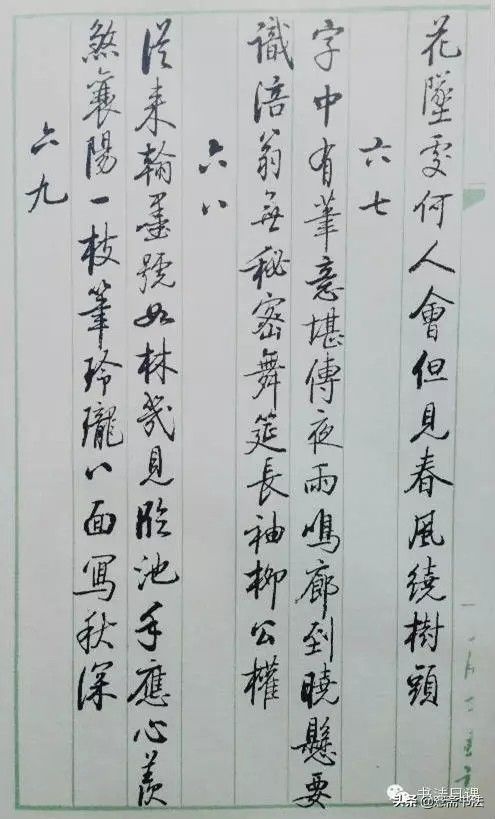 花墜處何人會但見春風繞樹頭
六七
字中有筆意堪傳夜雨鳴廊到曉懸要
識涪翁無秘密舞筵長袖柳公權
六八
從来翰墨號如林幾見臨池手應心羨
煞襄陽一枝筆玲瓏八面寫秋深
六九
书法日课
头条 @
斋书法